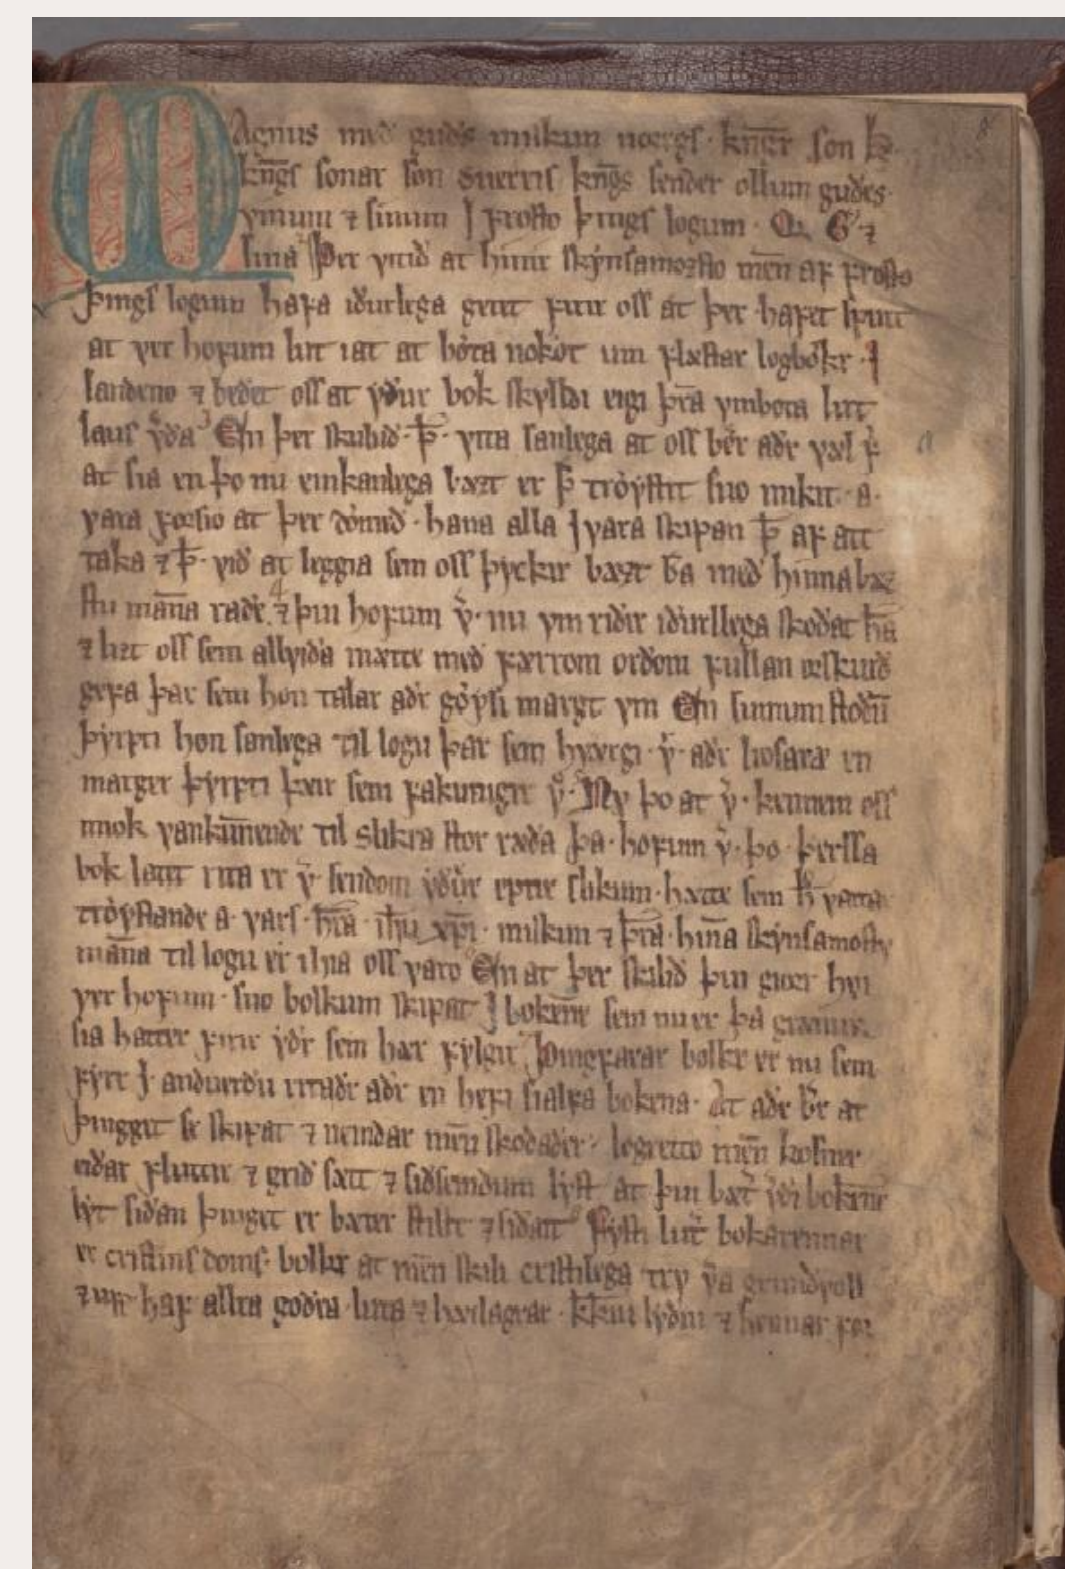 Magnus med guds miskun noregs konungr son h
kngs sonar son suerris kngs sender ollum guds
vinum ⁊ sinum j frosto þings logum Q. G. ⁊
sina Þer vitid at hinir skynsamozsto men af frosto
þings logum hafa idurlega gétet firir oss at þer hafet spurt
at ver hofum lut iat at bøta nokot um flæstar logbøkr j
landeno ⁊ bedet oss at ydur bok skylldi eigi þra vmbota lut
laus vda En þer skulid þ vita sanlega at oss ber adr val f
at sia en þo nu einkanlega bazt er þ trøystit suo mikit a
vara forsio at þer dømid hana alla j vara skipan þ af att
taka ⁊ þ vid at leggia sem oss þycker bazt ba med hinna baz
stu mana rade ⁊ þui hofum v nu vm ridir idurllega skodat ha
⁊ lizt oss sem allvida mætte med færrom ordom fullan ørskurd
gefa þar sem hon talar adr gøysi margt vm En sumum stodum
þyrfti hon sanlega til logu þar sem hværgi v adr liosaræ en
marger þyrfti þæir sem fakunnigir v Ny þo at v kennem oss
miok vankunnende til slikra stor ræda þa hofum v þo þerssa
bok latit rita er v sendom ydur epter slikum hætte sem h vatta
trøystande a vars hra ihu xpi miskun ⁊ þra hina skynsamostu
mana til logu er ihia oss varo En at þer skilid þui giør hui
ver hofum suo bolkum skipat j bokene sem nu er þa græinir
sia hatter firir ydr sem hær fylgir Þingfarar bolkr er nu sem
fyrr j andverdu ritadr adr en hefi sialfa bokena At adr br at
þingget se skipat ⁊ nemdar men skodader logretto men kosner
eidar fluttir ⁊ grid sætt ⁊ sidsemdum lyst at þui bæt ydr bokene
lyt sidan þinget er bæter stillt ⁊ sidatt Fysti lutr bokarennar
er cristins doms bolkr at men skili cristilega try va grundvoll
⁊ upp haf allra godra luta ⁊ hæilagrar kirkiu lydni ⁊ hennar for